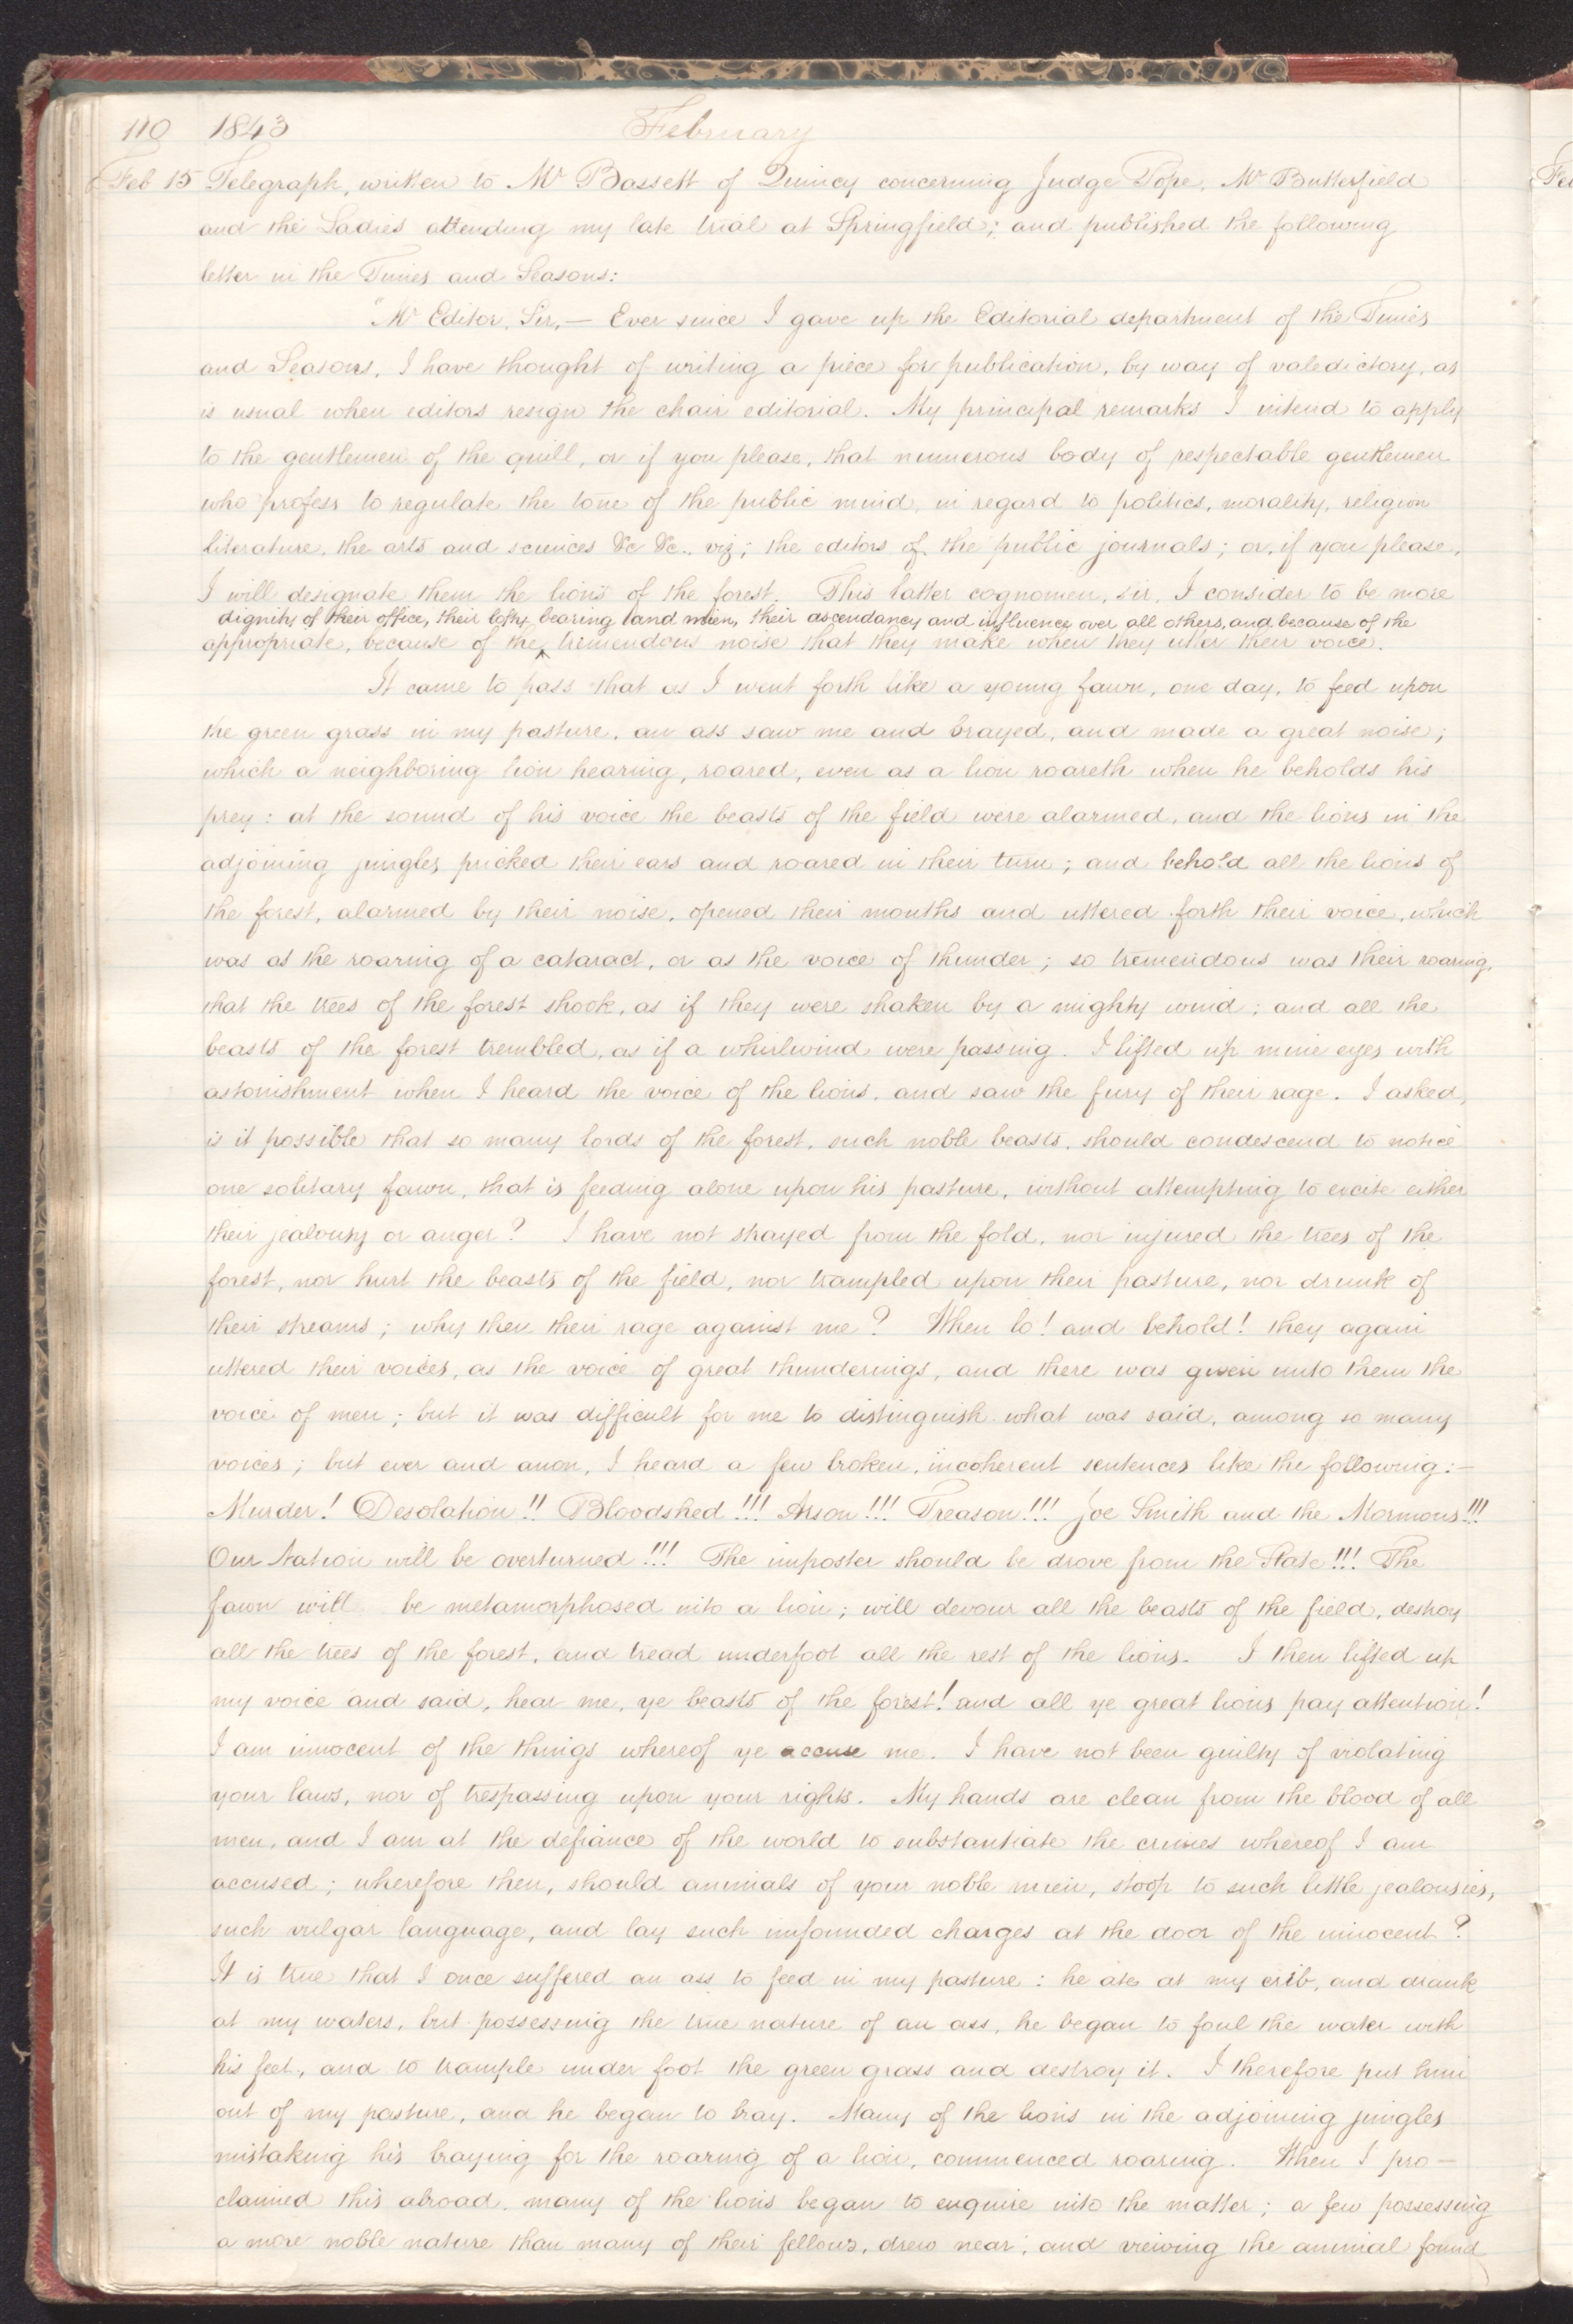 110 1843 February
Feb 15 Telegraph, written to Mr Bassett of Quincy concerning Judge Pope, Mr Butterfield
and the Ladies attending my late trial at Springfield; and published the following
letter in the Times and Seasons:
"Mr Editor, Sir,— Ever since I gave up the Editorial department of the Times
and Seasons, I have thought of writing a piece for publication, by way of valedictory, as
is usual when editors resign the chair editorial. My principal remarks I intend to apply
to the gentlemen of the quill, or if you please, that numerous body of respectable gentlemen
who profess to regulate the tone of the public mind, in regard to politics, morality, religion
literature, the arts and sciences &c &c., viz; the editors of the public journals; or, if you please,
I will designate them the lions of the forest. This latter cognomen, sir, I consider to be more
dignity of their office, their lofty bearing and mien, their ascendancy and influence over all others, and because of the
appropriate, because of the ^ tremendous noise that they make when they utter their voice.
It came to pass that as I went forth like a young fawn, one day, to feed upon
the green grass in my pasture, an ass saw me and brayed, and made a great noise;
which a neighboring lion hearing, roared, even as a lion roareth when he beholds his
prey: at the sound of his voice the beasts of the field were alarmed, and the lions in the
adjoining jungles pricked their ears and roared in their turn; and behold all the lions of
the forest, alarmed by their noise, opened their mouths and uttered forth their voice, which
was as the roaring of a cataract, or as the voice of thunder; so tremendous was their roaring,
that the trees of the forest shook, as if they were shaken by a mighty wind; and all the
beasts of the forest trembled, as if a whirlwind were passing. I lifted up mine eyes with
astonishment when I heard the voice of the lions, and saw the fury of their rage. I asked,
is it possible that so many lords of the forest, such noble beasts, should condescend to notice
one solitary fawn, that is feeding alone upon his pasture, without attempting to excite either
their jealousy or anger? I have not strayed from the fold, nor injured the trees of the
forest, nor hurt the beasts of the field, nor trampled upon their pasture, nor drunk of
their streams; why then their rage against me? When lo! and behold! they again
uttered their voices, as the voice of great thunderings, and there was given unto them the
voice of men; but it was difficult for me to distinguish what was said, among so many
voices; but ever and anon, I heard a few broken, incoherent sentences like the following:—
Murder! Desolation!! Bloodshed!!! Arson!!! Treason!!! Joe Smith and the Mormons!!!
Our Nation will be overturned!!! The imposter should be drove from the State!!! The
fawn will be metamorphosed into a lion; will devour all the beasts of the field, destroy
all the trees of the forest, and tread underfoot all the rest of the lions. I then lifted up
my voice and said, hear me, ye beasts of the forest! and all ye great lions pay attention!
I am innocent of the things whereof ye accuse me. I have not been guilty of violating
your laws, nor of trespassing upon your rights. My hands are clean from the blood of all
men, and I am at the defiance of the world to substantiate the crimes whereof I am
accused; wherefore then, should animals of your noble mien, stoop to such little jealousies,
such vulgar language, and lay such unfounded charges at the door of the innocent?
It is true that I once suffered an ass to feed in my pasture: he ate at my crib, and drank
at my waters, but possessing the true nature of an ass, he began to foul the water with
his feet, and to trample under foot the green grass and destroy it. I therefore put him
out of my pasture, and he began to bray. Many of the lions in the adjoining jungles
mistaking his braying for the roaring of a lion, commenced roaring. When I pro—
claimed this abroad, many of the lions began to enquire into the matter; a few possessing
a more noble nature than many of their fellows, drew near, and viewing the animal found